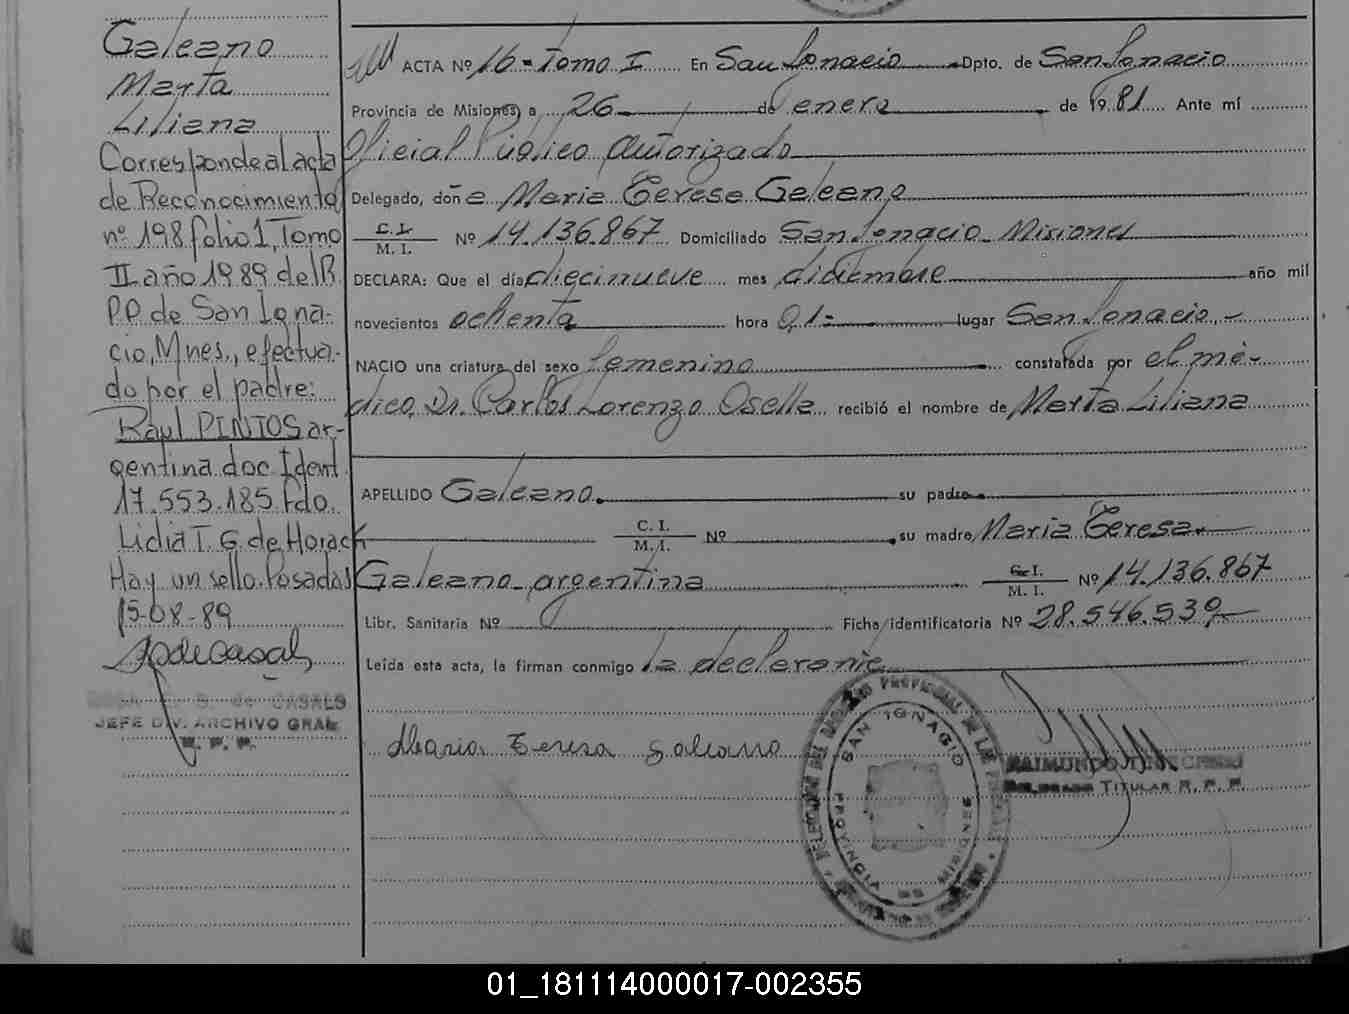 Galeano
Marta
Liliana
Corresponde al acta
de Reconocimiento
nº 198 folio 1, Tomo
II año 1989 del R.
P.P. de San Igna-
cio, Mnes., efectua-
do por el padre:
Raul PINTOS ar-
gentina doc. Ident.
17.553.185. Fdo.
Lidia T. G. de Horack
Hay un sello. Posadas
15-08-89
de CASALS
JEFE DIV. ARCHIVO GRAL
R. P. P.
ACTA Nº 16 = Tomo I En San Ignacio Dpto. de San Ignacio
Provincia de Misiones, a 26 de enero de 1981 Ante mí
Oficial Público Autorizado
Delegado, doña Maria Teresa Galeano
C. I.
M. I. Nº 14.136.867 Domiciliado San Ignacio Misiones
DECLARA: Que el día diecinueve mes diciembre año mil
novecientos ochenta hora 01= lugar San Ignacio.-
NACIO una criatura del sexo femenino constatada por el mé-
dico, Dr. Carlos Lorenzo Oselle recibió el nombre de Marta Liliana
APELLIDO Galeano. su padre
C. I.
M. I. Nº su madre Maria Teresa
Galeano argentina C. I.
M. I. Nº 14.136.867
Libr. Sanitaria Nº Ficha identificatoria Nº 28.546.539
Leída esta acta, la firman conmigo la declarante
Maria Teresa Galeano
SAN IGNACIO
PROVINCIA DE MISIONES
RAIMUNDO
DELEGADO TITULAR R. P. P.
01_181114000017-002355